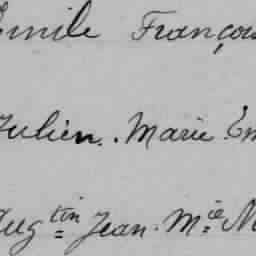 Emile Françoi
Julien. Marie Em
Aug tin Jean. M ie N